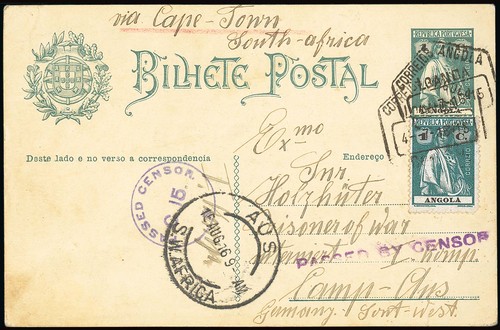 via Cape-Town
South-africa
REPUBLICA PORTUGUESA
CORREIOS
ANGOLA
LOANDA
BILHETE POSTAL
REPUBLICA PORTUGUESA
1 C.
CORREIO
ANGOLA
Deste lado e no verso a correspondencia
Endereço
Exmo
Snr.
Holzhüter
Prisoner of war
Interniert I. Komp.
Camp-Aus
Germany Sout-West.
PASSED CENSOR
15
AUS
15 AUG. 16 9 AM
S.W. AFRICA
PASSED BY CENSOR